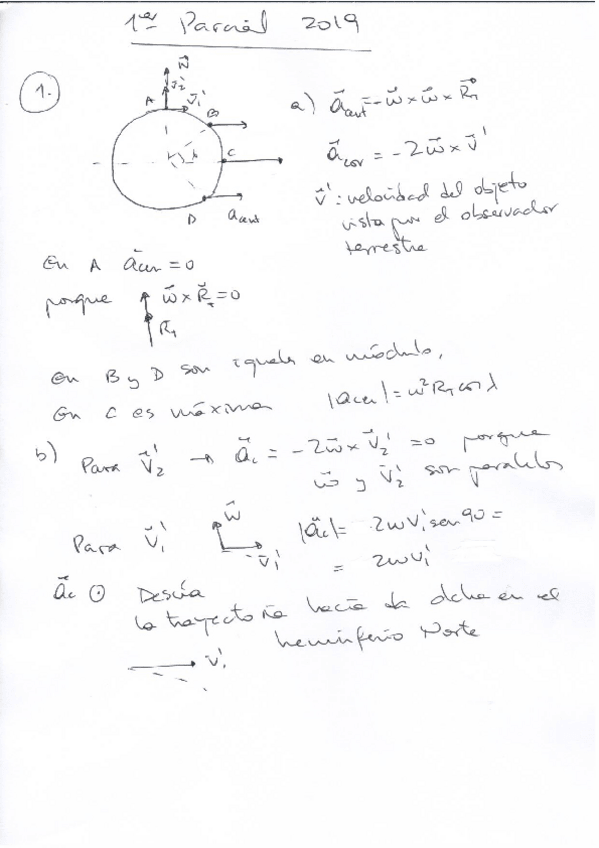 1er Parcial 2019
1.
N⃗
v⃗₂'
A v⃗₁' B
λ C
D a_cent
a) a⃗_cent = -ω⃗ × ω⃗ × R⃗_T
a⃗_cor = -2ω⃗ × v⃗'
v⃗': velocidad del objeto
vista por el observador
terrestre
En A a⃗_cen = 0
porque ω⃗ × R⃗_T = 0
R⃗_T
En B y D son iguales en módulo,
En C es máxima |a_cen| = ω² R_T cos λ
b) Para v⃗₂' → a⃗_c = -2ω⃗ × v⃗₂' = 0 porque
ω⃗ y v⃗₂' son paralelos
Para v⃗₁' ω⃗ v⃗₁' |a⃗_c| = 2ωv₁' sen 90 =
= 2ωv₁'
a⃗_c ⊙ Desvía
la trayectoria hacia la dcha en el
hemisferio Norte
v⃗₁'